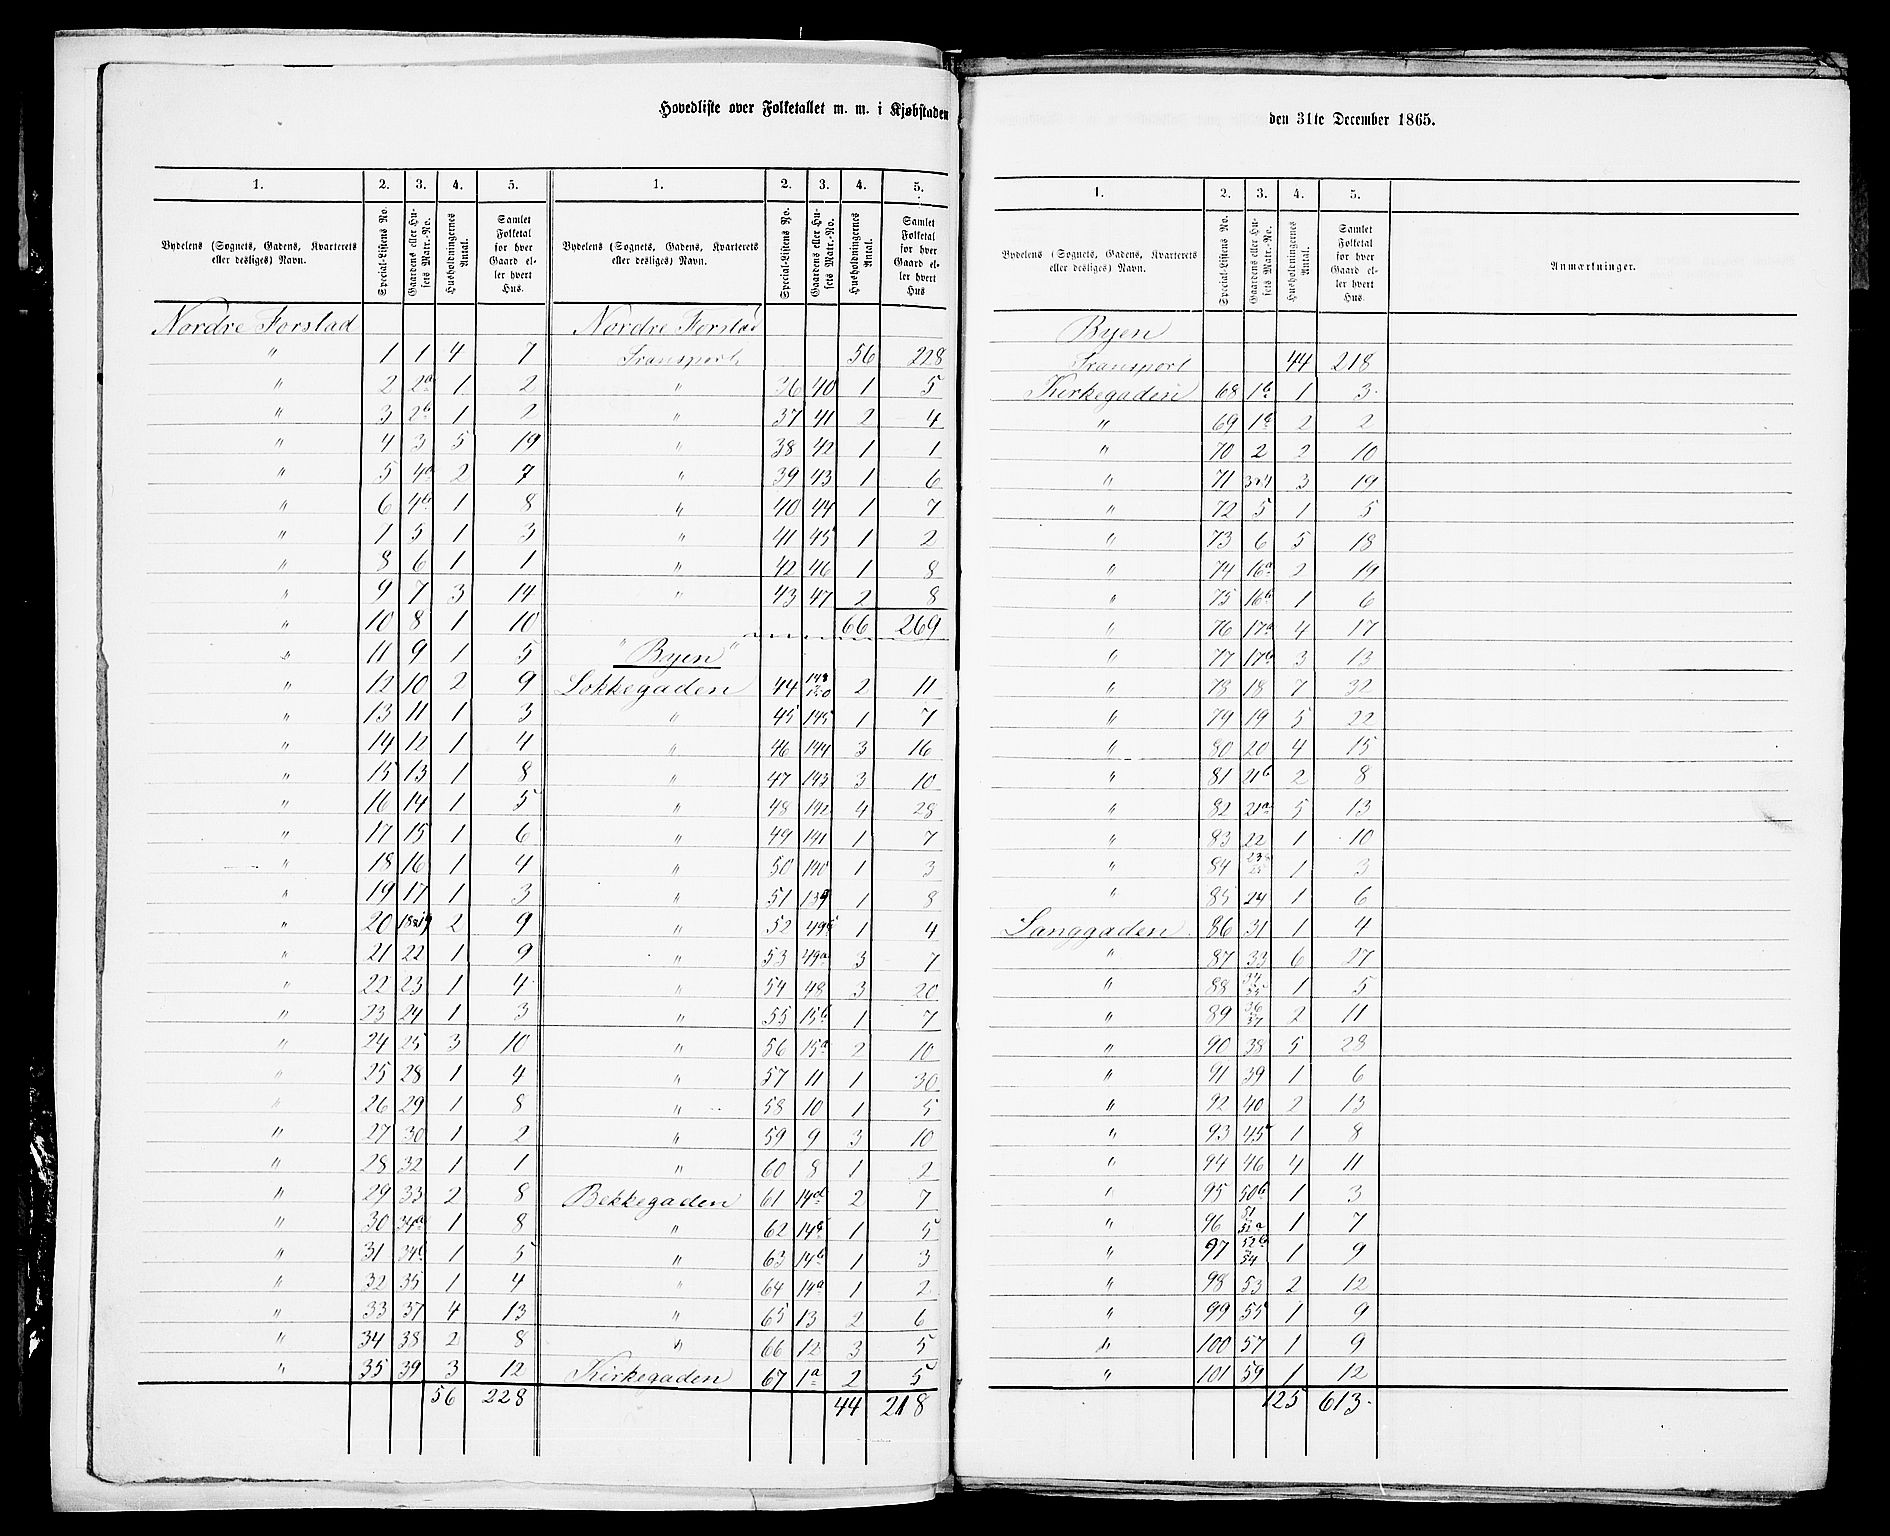 Hovedliste over Folketallet m. m. i Kjøbstaden
den 31te December 1865.
1. 2. 3. 4. 5.
Bydelens (Sognets, Gadens, Kvarterets eller desliges) Navn. Special-Listens No. Gaardens eller Husets Matr.-No. Husholdningernes Antal. Samlet Folketal for hver Gaard eller hvert Hus.
Nordre Forstad
" 1 1 4 7
" 2 2a 1 2
" 3 2b 1 2
" 4 3 5 19
" 5 4a 2 7
" 6 4b 1 8
" 7 5 1 3
" 8 6 1 1
" 9 7 3 14
" 10 8 1 10
" 11 9 1 5
" 12 10 2 9
" 13 11 1 3
" 14 12 1 4
" 15 13 1 8
" 16 14 1 5
" 17 15 1 6
" 18 16 1 4
" 19 17 1 3
" 20 18&19 2 9
" 21 22 1 9
" 22 23 1 4
" 23 24 1 3
" 24 25 3 10
" 25 28 1 4
" 26 29 1 8
" 27 30 1 2
" 28 32 1 1
" 29 33 2 8
" 30 34a 1 8
" 31 34b 1 5
" 32 35 1 4
" 33 37 4 13
" 34 38 2 8
" 35 39 3 12
56 228
1. 2. 3. 4. 5.
Bydelens (Sognets, Gadens, Kvarterets eller desliges) Navn. Special-Listens No. Gaardens eller Husets Matr.-No. Husholdningernes Antal. Samlet Folketal for hver Gaard eller hvert Hus
Nordre Forstad
Transport 56 228
" 36 40 1 5
" 37 41 2 4
" 38 42 1 1
" 39 43 1 6
" 40 44 1 7
" 41 45 1 2
" 42 46 1 8
" 43 47 2 8
66 269
"Byen"
Lokkegaden 44 2 11
" 45 145 1 7
" 46 144 3 16
" 47 143 3 10
" 48 142 4 28
" 49 141 1 7
" 50 140 1 3
" 51 139 1 8
" 52 49b 1 4
" 53 49a 3 7
" 54 48 3 20
" 55 15b 1 7
" 56 15a 2 10
" 57 11 1 30
" 58 10 1 5
" 59 9 3 10
" 60 8 1 2
Bekkegaden 61 14d 2 7
" 62 14c 1 5
" 63 14b 1 3
" 64 14a 1 2
" 65 13 2 6
" 66 12 3 5
Kirkegaden 67 1a 2 5
44 218
1. 2. 3. 4. 5.
Bydelens (Sognets, Gadens, Kvarterets eller desliges) Navn. Special-Listens No. Gaardens eller Husets Matr.-No. Husholdningernes Antal. Samlet Folketal for hver Gaard eller hvert Hus. Anmærkninger.
Byen
Transport 44 218
Kirkegaden 68 1b 1 3
" 69 2 2
" 70 2 2 10
" 71 3&4 3 19
" 72 5 1 5
" 73 6 5 18
" 74 16a 2 19
" 75 16b 1 6
" 76 17a 4 17
" 77 17b 3 13
" 78 18 7 32
" 79 19 5 22
" 80 20 4 15
" 81 21b 2 8
" 82 21a 5 13
" 83 22 1 10
" 84 1 3
" 85 24 1 6
Langgaden 86 31 1 4
" 87 33 6 27
" 88 34 35 1 5
" 89 36 37 2 11
" 90 38 5 28
" 91 39 1 6
" 92 40 2 13
" 93 45 1 8
" 94 46 4 11
" 95 50b 1 3
" 96 51 52a 1 7
" 97 52b 54 1 9
" 98 53 2 12
" 99 55 1 9
" 100 57 1 9
" 101 59 1 12
125 613